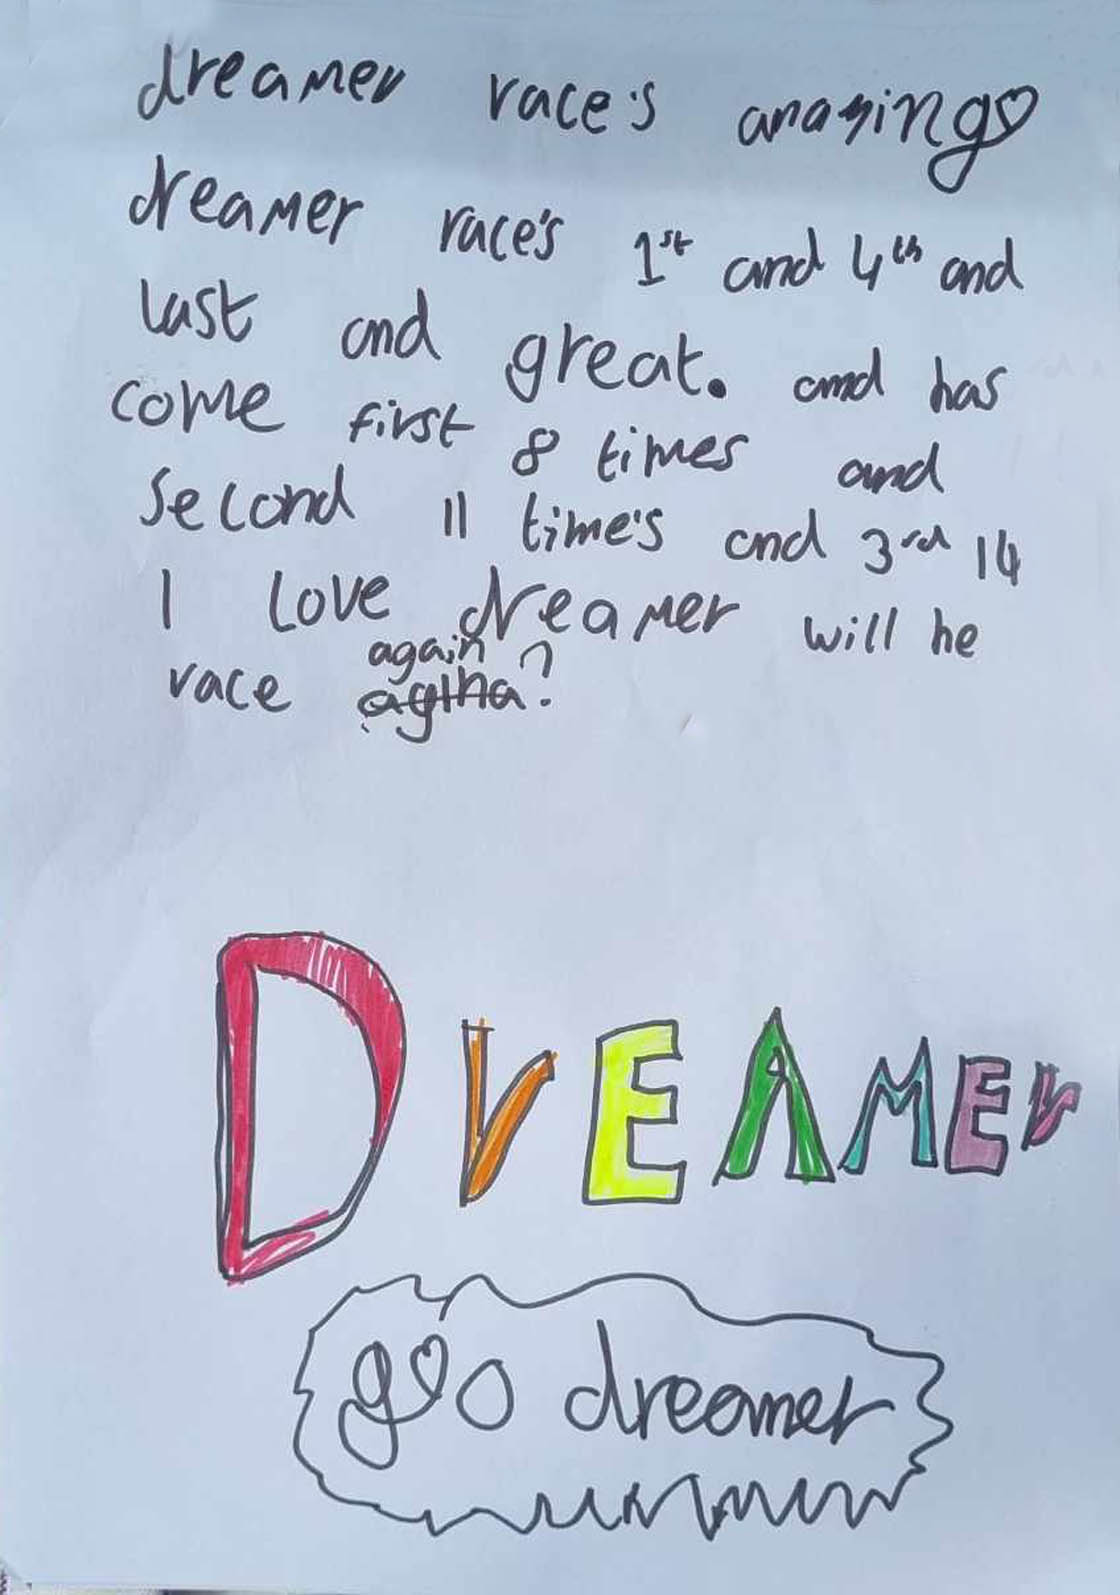 dreamer race's amazing
dreamer race's 1st and 4th and
last and great. and has
come first 8 times and
second 11 time's and 3rd 14
I Love dreamer will he
again
race agiha?
DrEAMEr
go dreamer